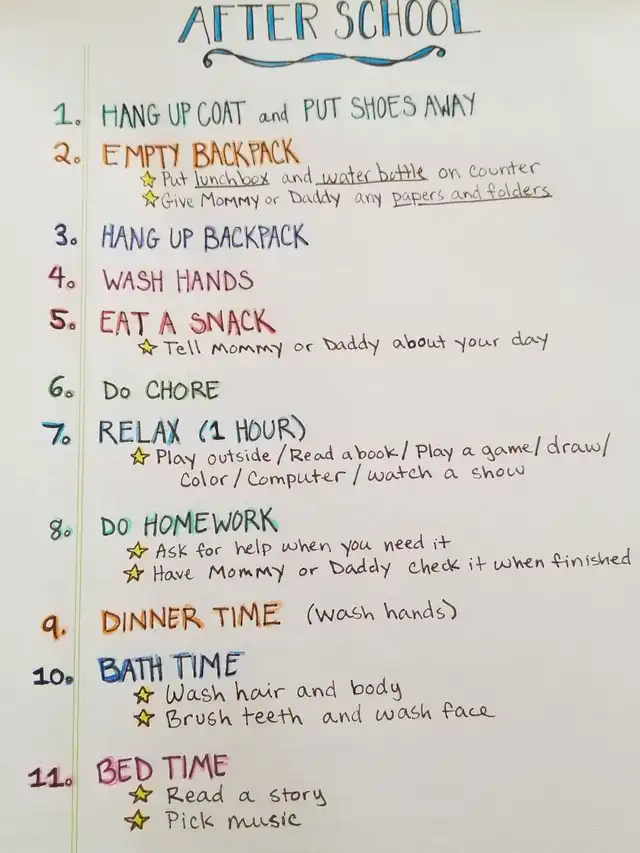 AFTER SCHOOL
1. HANG UP COAT and PUT SHOES AWAY
2. EMPTY BACKPACK
Put lunchbox and water bottle on counter
Give Mommy or Daddy any papers and folders
3. HANG UP BACKPACK
4. WASH HANDS
5. EAT A SNACK
Tell Mommy or Daddy about your day
6. DO CHORE
7. RELAX (1 HOUR)
Play outside/Read a book/Play a game/draw/
Color/Computer/watch a show
8. DO HOMEWORK
Ask for help when you need it
Have Mommy or Daddy check it when finished
9. DINNER TIME (wash hands)
10. BATH TIME
Wash hair and body
Brush teeth and wash face
11. BED TIME
Read a story
Pick music